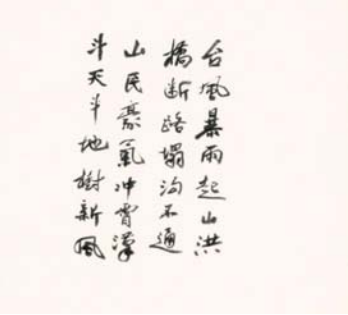 台風暴雨起山洪
橋断路塌沟不通
山民豪氣冲霄漢
斗天斗地樹新風